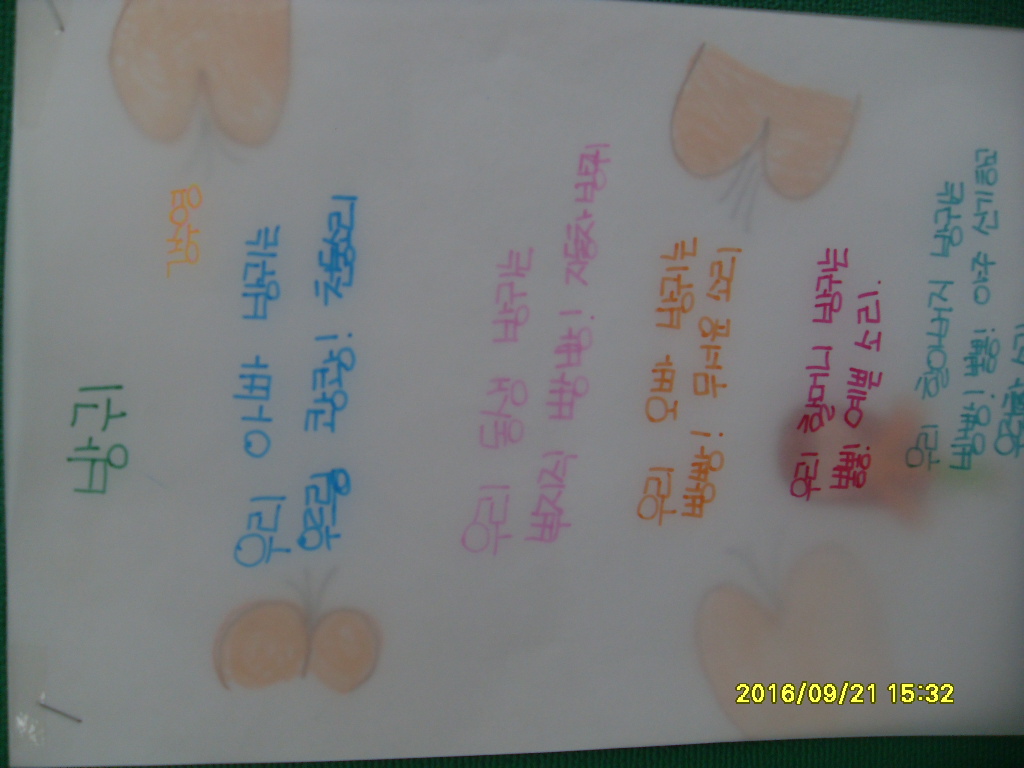 방귀
우리 아빠 방귀는
우르릉 쾅쾅! 천둥소리
우리 동생 방귀는
뿌지직 빵빵! 자동차 방귀
우리 오빠 방귀는
빵빵! 무서운 소리
우리 할머니 방귀는
뿡! 예쁜 소리.
우리 할아버지 방귀는
빵빵! 뿡! 아주 신기하고
소리
2016/09/21 15:32